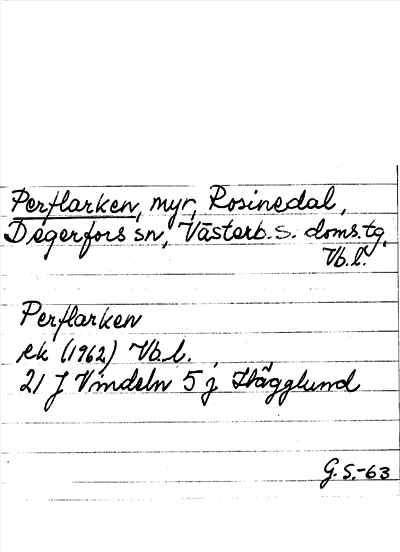 Perflarken, myr, Rosinedal,
Degerfors sn, Västerb. s. doms.tg,
Vb.l.
Perflarken
rk (1962) Vb.l.
21 J Vindeln 5 j Hägglund
G.S.-63